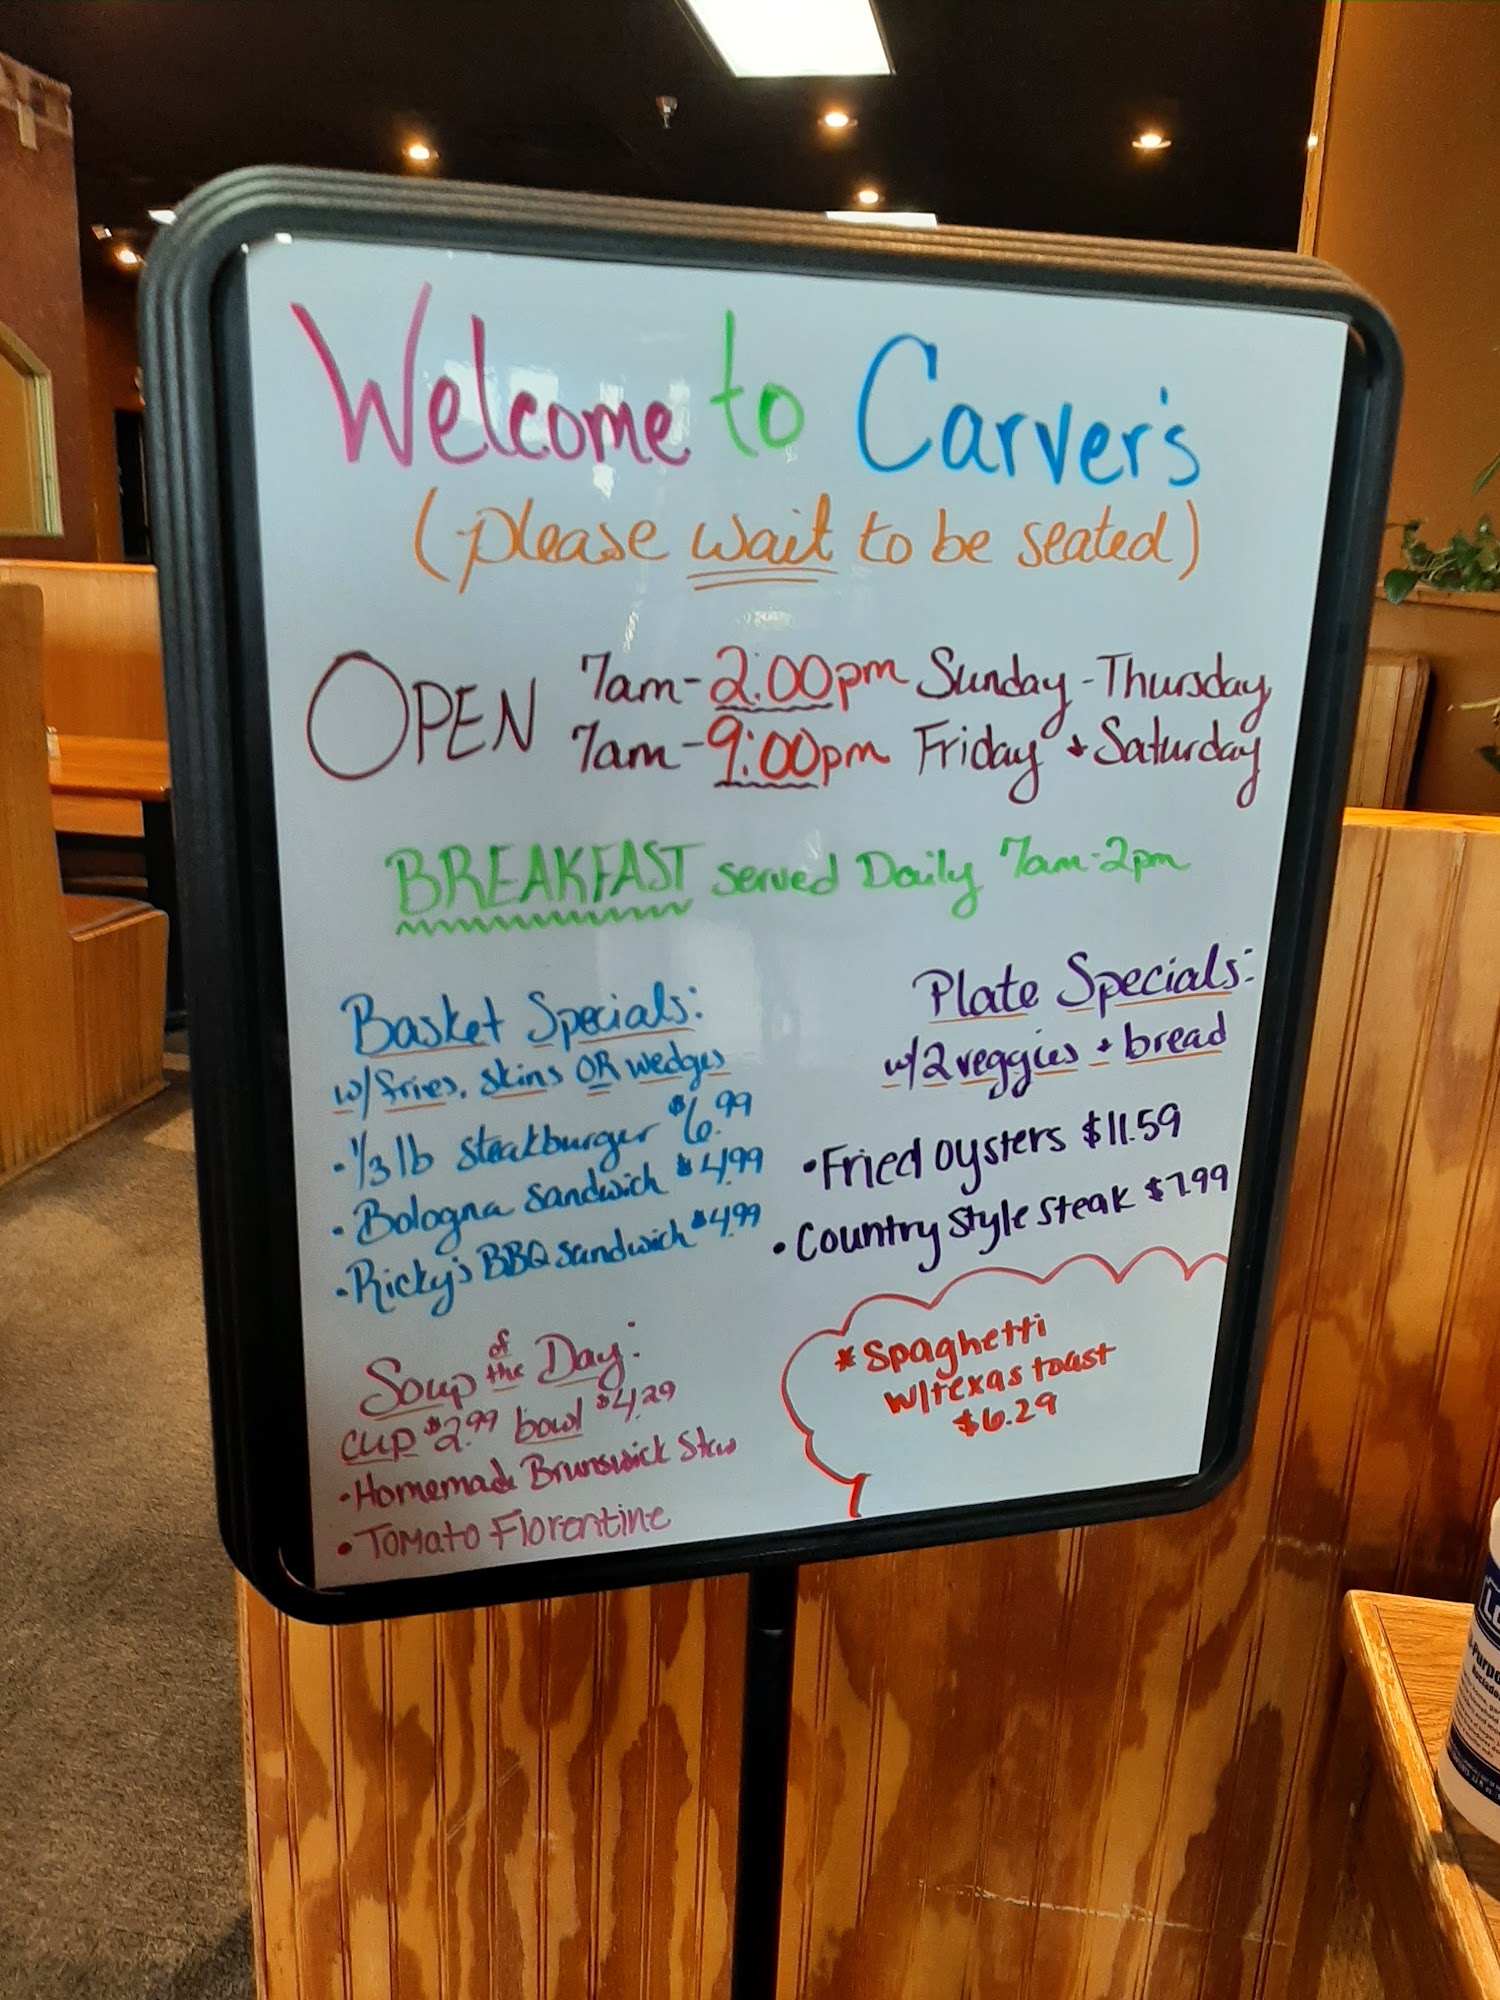 Welcome to Carver's
(please wait to be seated)
OPEN 7am-2:00pm Sunday-Thursday
7am-9:00pm Friday + Saturday
BREAKFAST served Daily 7am-2pm
Basket Specials:
w/fries, skins OR wedges
• 1/3 lb steakburger $6.99
• Bologna sandwich $4.99
• Ricky's BBQ sandwich $4.99
Soup of the Day:
cup $2.99 bowl $4.29
• Homemade Brunswick Stew
• Tomato Florentine
Plate Specials:
w/2 veggies + bread
• Fried oysters $11.59
• Country style steak $7.99
* Spaghetti
w/texas toast
$6.29